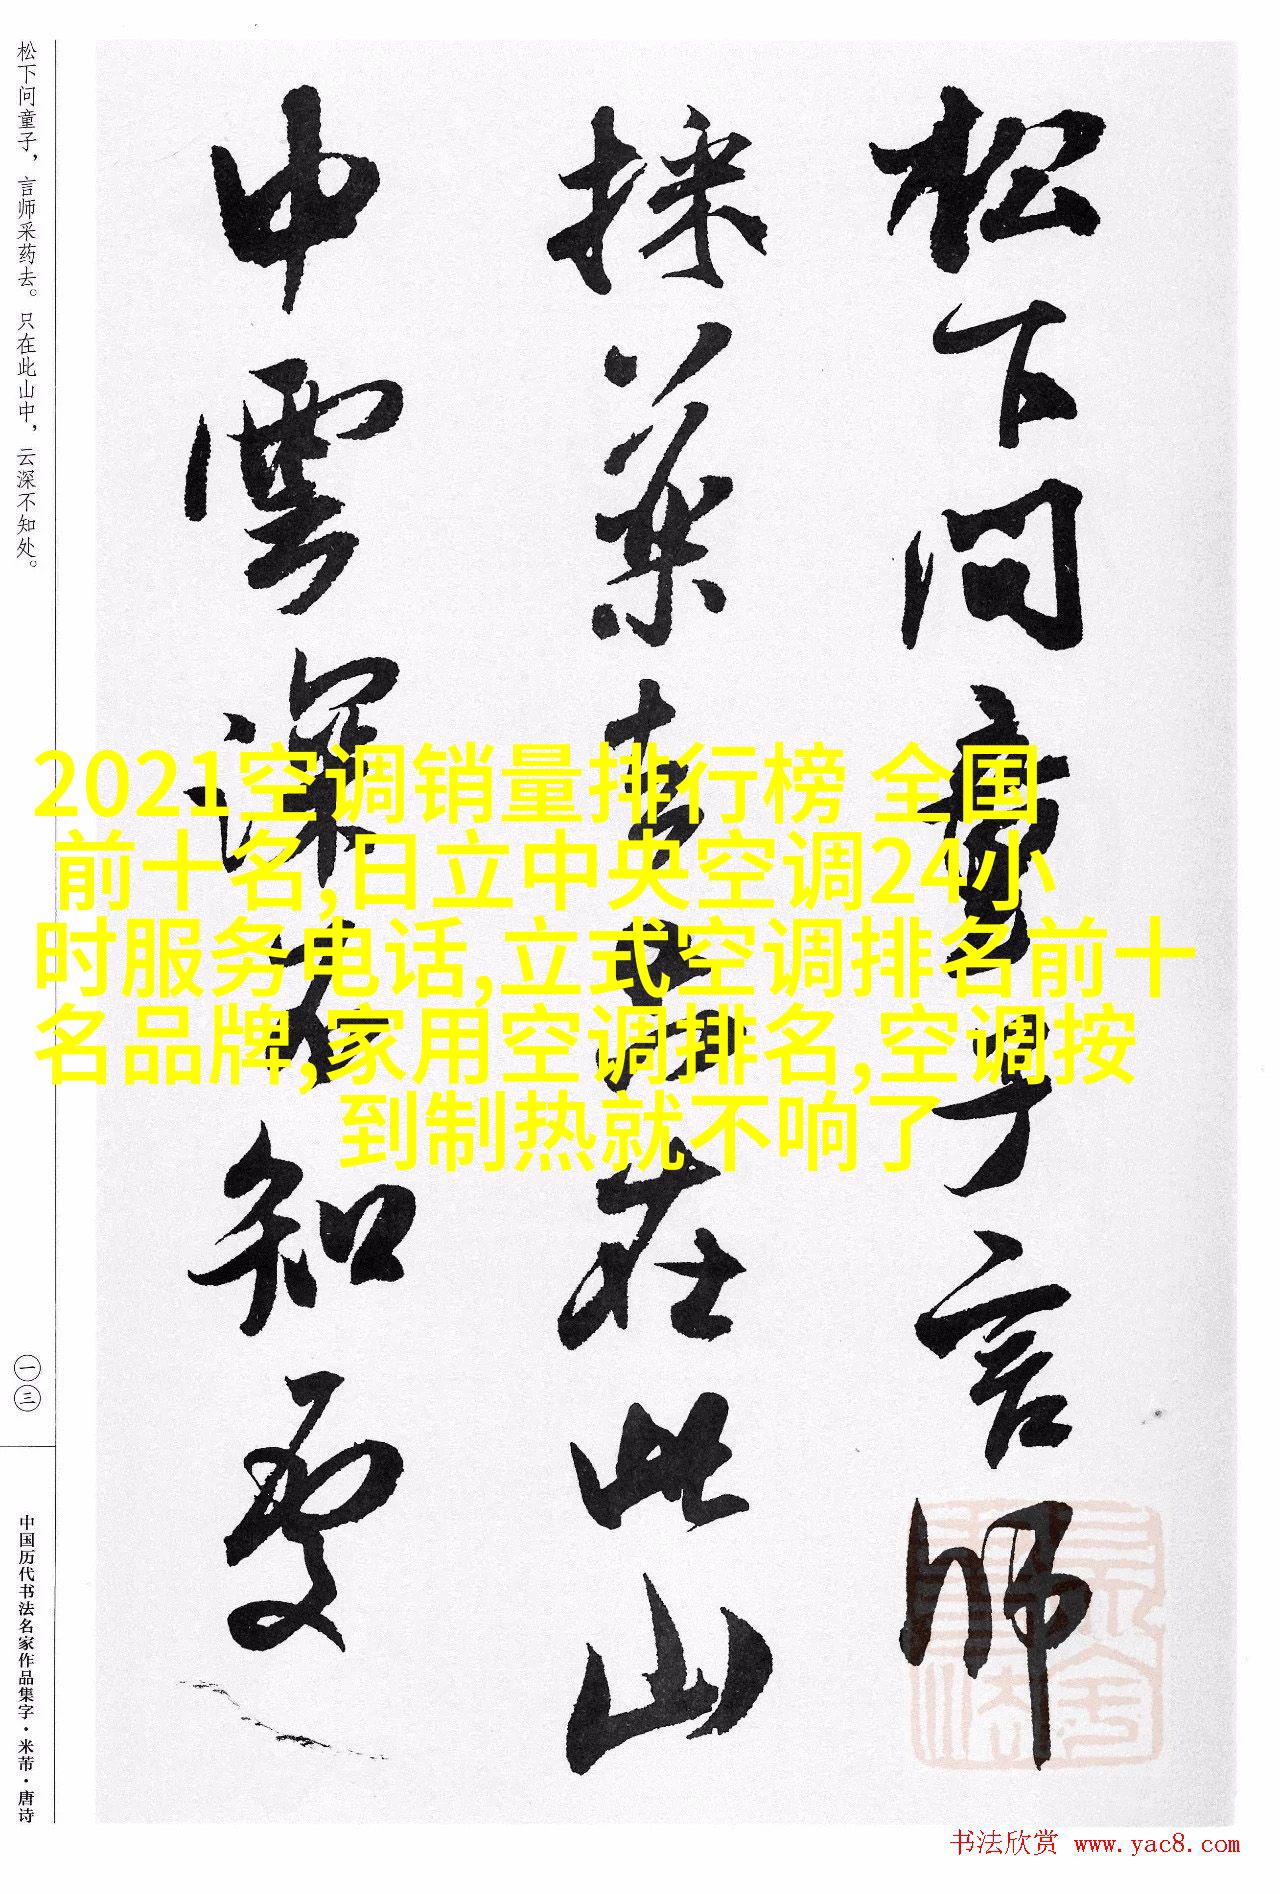 松下问童子，言师采药去。只在此山中，云深不知处。
一三
中国历代书法名家作品集字·米芾·唐诗
松下问童子言师
採药去只在此山
中雲深不知処
2021空调销量排行榜 全国
前十名,日立中央空调24小
时服务电话,立式空调排名前十
名品牌,家用空调排名,空调按
到制热就不响了
书法欣赏 www.yac8.com